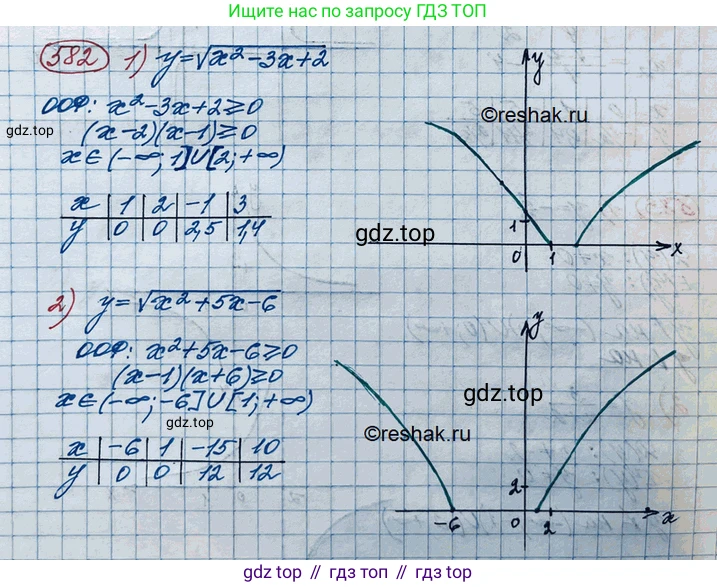 Ищите нас по запросу ГДЗ ТОП
582 1) y=√x²-3x+2
ООФ: x²-3x+2⩾0
(x-2)(x-1)⩾0
x∈(-∞; 1]∪[2; +∞)
x | 1 | 2 | -1 | 3
y | 0 | 0 | 2,5 | 1,4
y
1
0 1 x
©reshak.ru
gdz.top
gdz.top
2) y=√x²+5x-6
ООФ: x²+5x-6⩾0
(x-1)(x+6)⩾0
x∈(-∞; -6]∪[1; +∞)
x | -6 | 1 | -15 | 10
y | 0 | 0 | 12 | 12
y
2
-6 0 2 x
gdz.top
©reshak.ru
gdz.top
gdz.top // гдз.топ // гдз.top